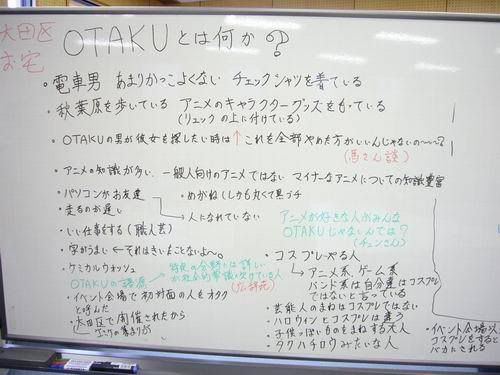 大田区
お宅
OTAKUとは何か?
・電車男 あまりかっこよくない チェックシャツを着ている
・秋葉原を歩いている アニメのキャラクターグッズをもっている
(リュックの上に付けている)
・OTAKUの男が彼女を探したい時は↑これを全部やめた方がいいんじゃないの〜〜?
(馬さん談)
・アニメの知識が多い 一般人向けのアニメではない マイナーなアニメについての知識豊富
・パソコンがお友達
・めがね(しかも丸くて黒ブチ
・走るのが遅い
人になれていない
・いい仕事をする(職人芸)
アニメが好きな人がみんな
OTAKUじゃないんでは?
(チェンさん)
・字がうまい ←それはきいたことないよ〜。
・ケミカルウォッシュ
OTAKUの語源
特定の分野には詳しい
が社会的常識に欠けている人
(広辞苑)
・イベント会場で初対面の人をオタク
と呼んだ
・大田区で開催されたから
・コスプレやる人
アニメ系、ゲーム系
バンド系は自分達はコスプレ
ではないと言っている
・芸能人のまねはコスプレではない
・ハロウィンとコスプレは違う
・子供っぽいものをまねする大人
・タクハチロウみたいな人
・イベント会場以外
コスプレをすると
バカにされる